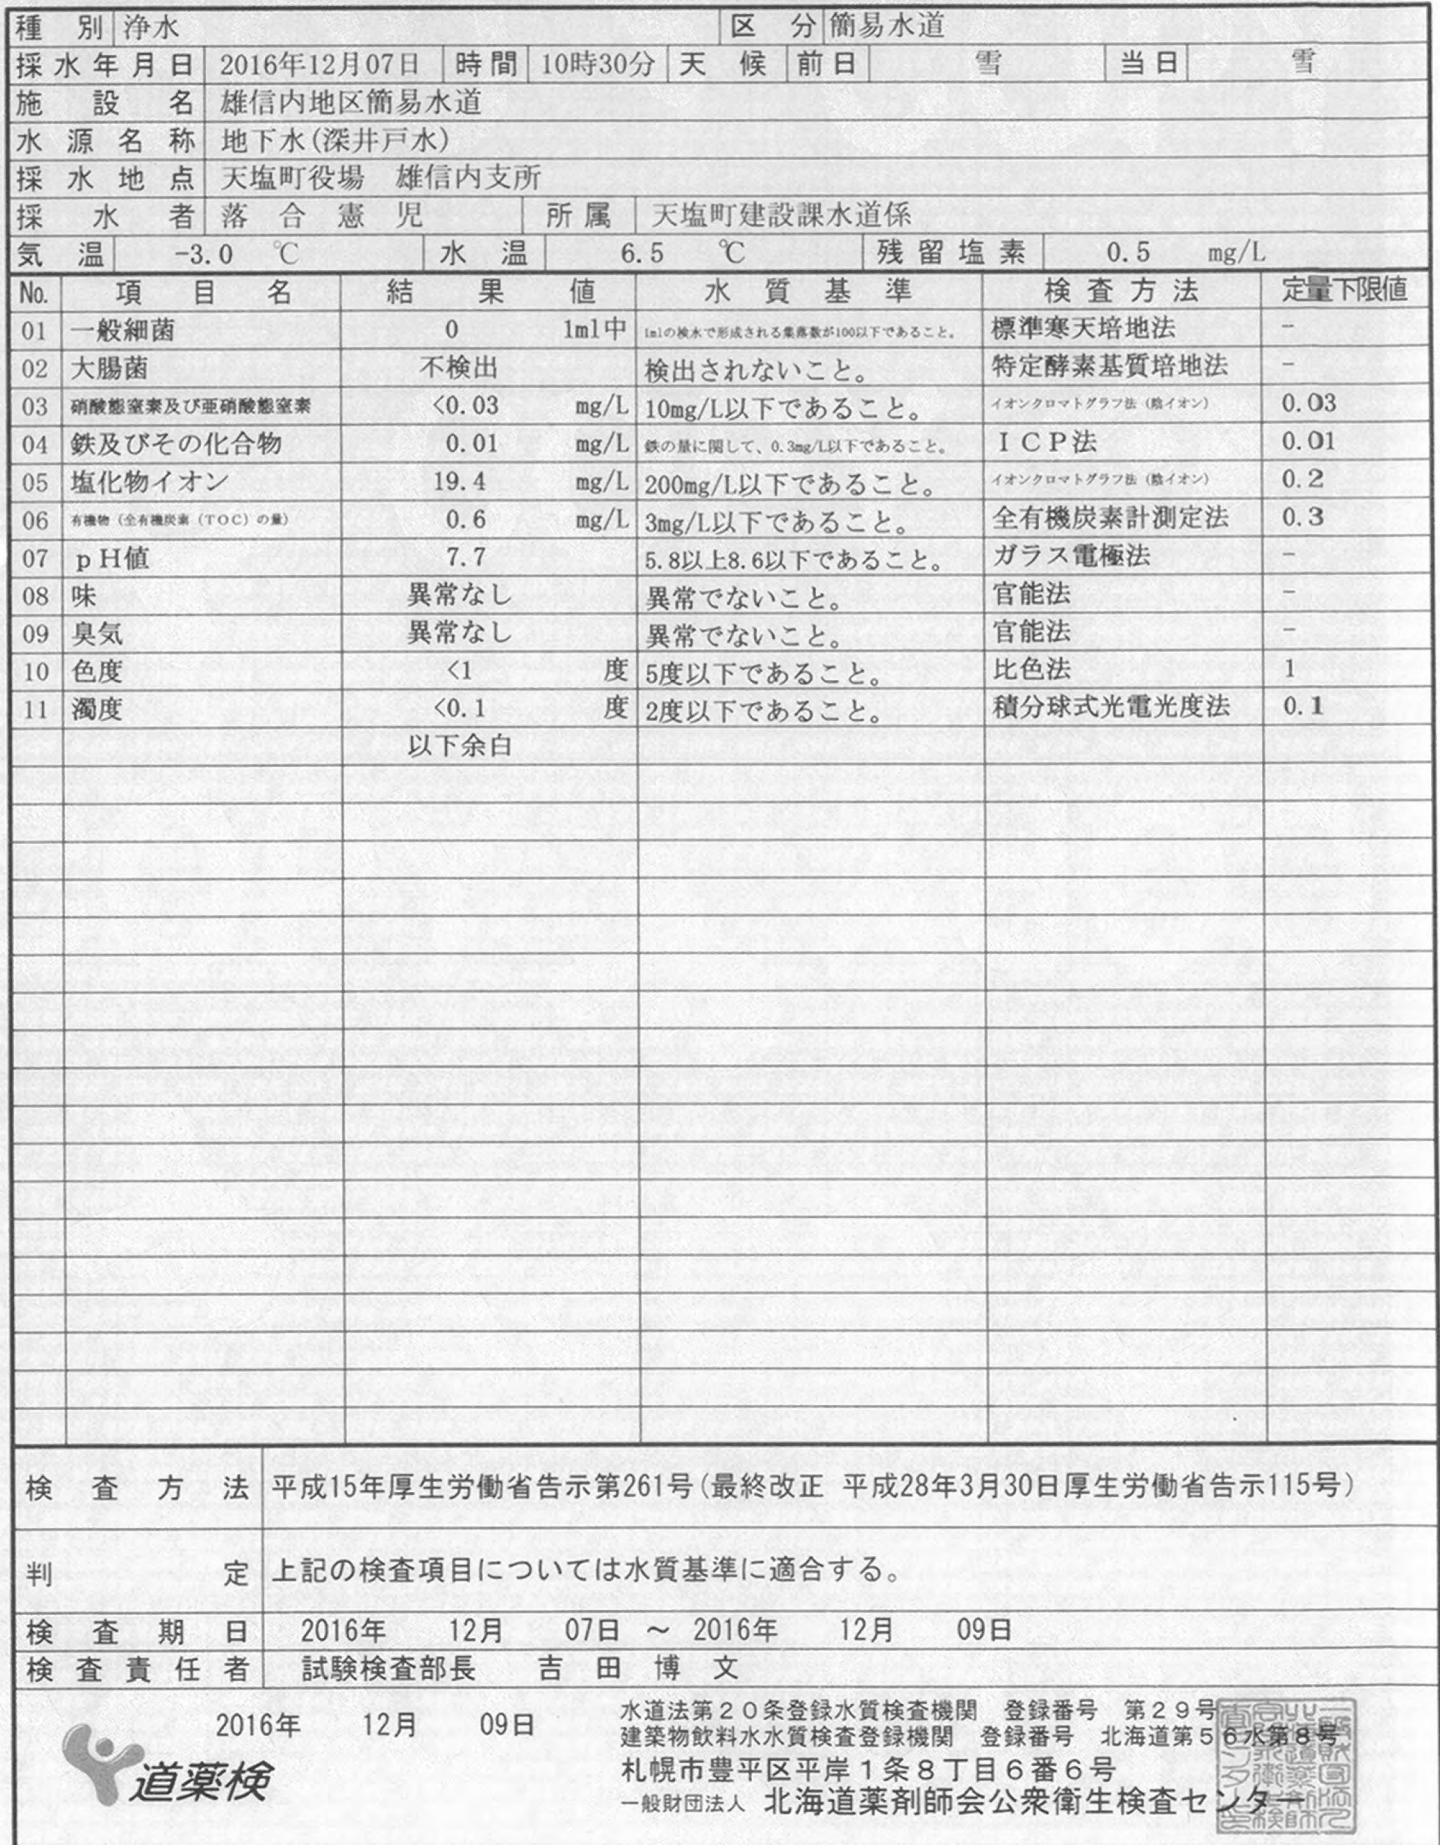 種別 浄水 区分 簡易水道
採水年月日 2016年12月07日 時間 10時30分 天候 前日 雪 当日 雪
施設名 雄信内地区簡易水道
水源名称 地下水(深井戸水)
採水地点 天塩町役場 雄信内支所
採水者 落合憲児 所属 天塩町建設課水道係
気温 -3.0 ℃ 水温 6.5 ℃ 残留塩素 0.5 mg/L
No. 項目名 結果値 水質基準 検査方法 定量下限値
01 一般細菌 0 1ml中 1mlの検水で形成される集落数が100以下であること。 標準寒天培地法 -
02 大腸菌 不検出 検出されないこと。 特定酵素基質培地法 -
03 硝酸態窒素及び亜硝酸態窒素 <0.03 mg/L 10mg/L以下であること。 イオンクロマトグラフ法（陰イオン） 0.03
04 鉄及びその化合物 0.01 mg/L 鉄の量に関して、0.3mg/L以下であること。 ＩＣＰ法 0.01
05 塩化物イオン 19.4 mg/L 200mg/L以下であること。 イオンクロマトグラフ法（陰イオン） 0.2
06 有機物（全有機炭素（TOC）の量） 0.6 mg/L 3mg/L以下であること。 全有機炭素計測定法 0.3
07 ｐＨ値 7.7 5.8以上8.6以下であること。 ガラス電極法 -
08 味 異常なし 異常でないこと。 官能法 -
09 臭気 異常なし 異常でないこと。 官能法 -
10 色度 <1 度 5度以下であること。 比色法 1
11 濁度 <0.1 度 2度以下であること。 積分球式光電光度法 0.1
以下余白
検査方法 平成15年厚生労働省告示第261号(最終改正 平成28年3月30日厚生労働省告示115号)
判定 上記の検査項目については水質基準に適合する。
検査期日 2016年 12月 07日 ～ 2016年 12月 09日
検査責任者 試験検査部長 吉田博文
2016年 12月 09日
水道法第２０条登録水質検査機関 登録番号 第２９号
建築物飲料水水質検査登録機関 登録番号 北海道第５６水第８号
札幌市豊平区平岸１条８丁目６番６号
一般財団法人 北海道薬剤師会公衆衛生検査センター
道薬検